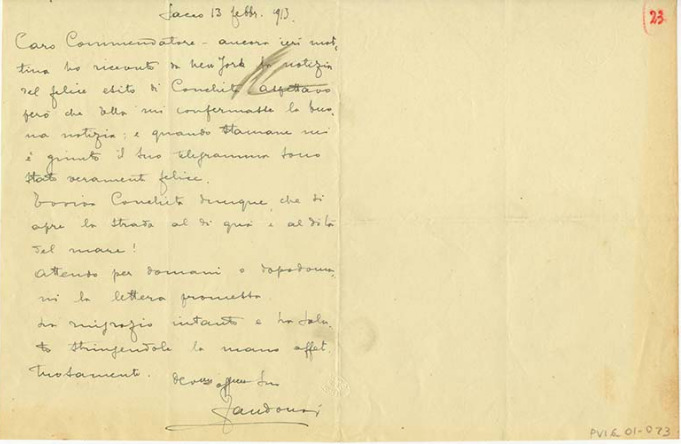 Sacco 13 febbr. 1913.
23
Caro Commendatore - ancora ieri mat-
tina ho ricevuto da New York la notizia
del felice esito di Conchita aspettavo
però che Ella mi confermasse la buo-
na notizia: e quando stamane mi
è giunto il Suo telegramma sono
stato veramente felice.
Conchita dunque che si
apre la strada al di qua e al di là
del mare!
Attendo per domani o dopodoma-
ni la lettera promessa.
La ringrazio intanto e La salu-
to stringendole la mano affet-
tuosamente.
Suo
Zandonai
PVI a 01-023